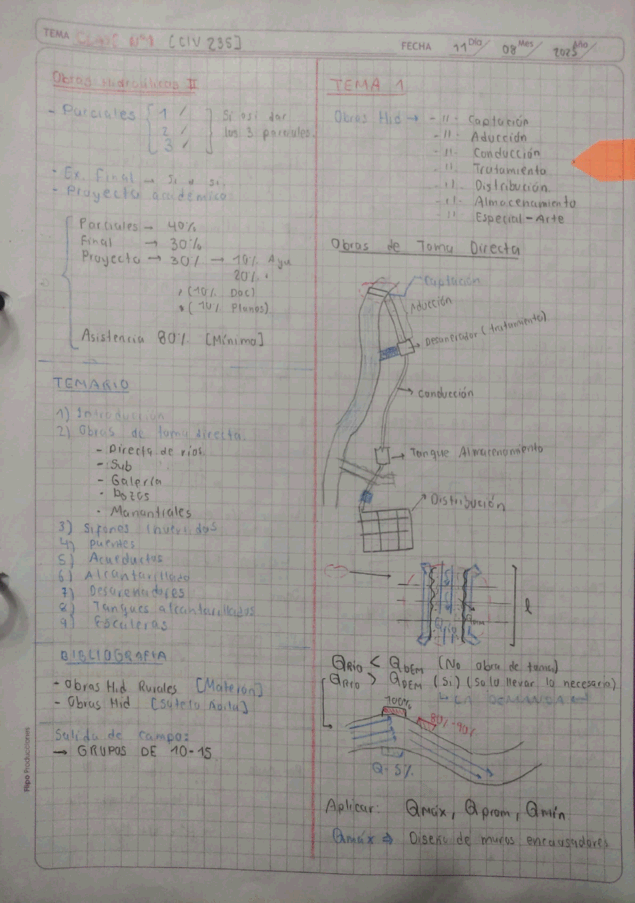 TEMA CLASE Nº1 [CIV 235]
FECHA 11 Día / 08 Mes / 2025 Año
Obras Hidraúlicas II
- Parciales [ 1 /
2 /
3 / ] Si osi dar
los 3 parciales.
- Ex. Final → Si o si
- Proyecto académico
Parciales → 40%
Final → 30%
Proyecto → 30% → 10% Ayu
20%
(10% Doc)
(10% Planos)
Asistencia 80% [Mínimo]
TEMARIO
1) Introducción
2) Obras de toma directa
- Directa de rios
- Sub
- Galería
- Pozos
- Manantiales
3) Sifones Invertidos
4) Puentes
5) Acueductos
6) Alcantarillado
7) Desarenadores
8) Tanques alcantarillados
9) Escaleras
BIBLIOGRAFIA
- Obras Hid Rurales [Materon]
- Obras Hid
Salida de campo:
→ GRUPOS DE 10-15
Hipo Producciones
TEMA 1
Obras Hid → -11- Captación
-11- Aducción
-11- Conducción
-11- Tratamiento
-11- Distribución
-11- Almacenamiento
-11- Especial - Arte
Obras de Toma Directa
Captación
Aducción
Desarenador (tratamiento)
Conducción
Tanque Almacenamiento
Distribución
l
QRIO < QDEM (No obra de toma)
QRIO > QDEM (Si) (Solo llevar lo necesario)
LA DEMANDA
100%
80%-90%
Q-5%
Aplicar: Qmáx, Qprom, Qmín
Qmáx ⇒ Diseño de muros encausadores